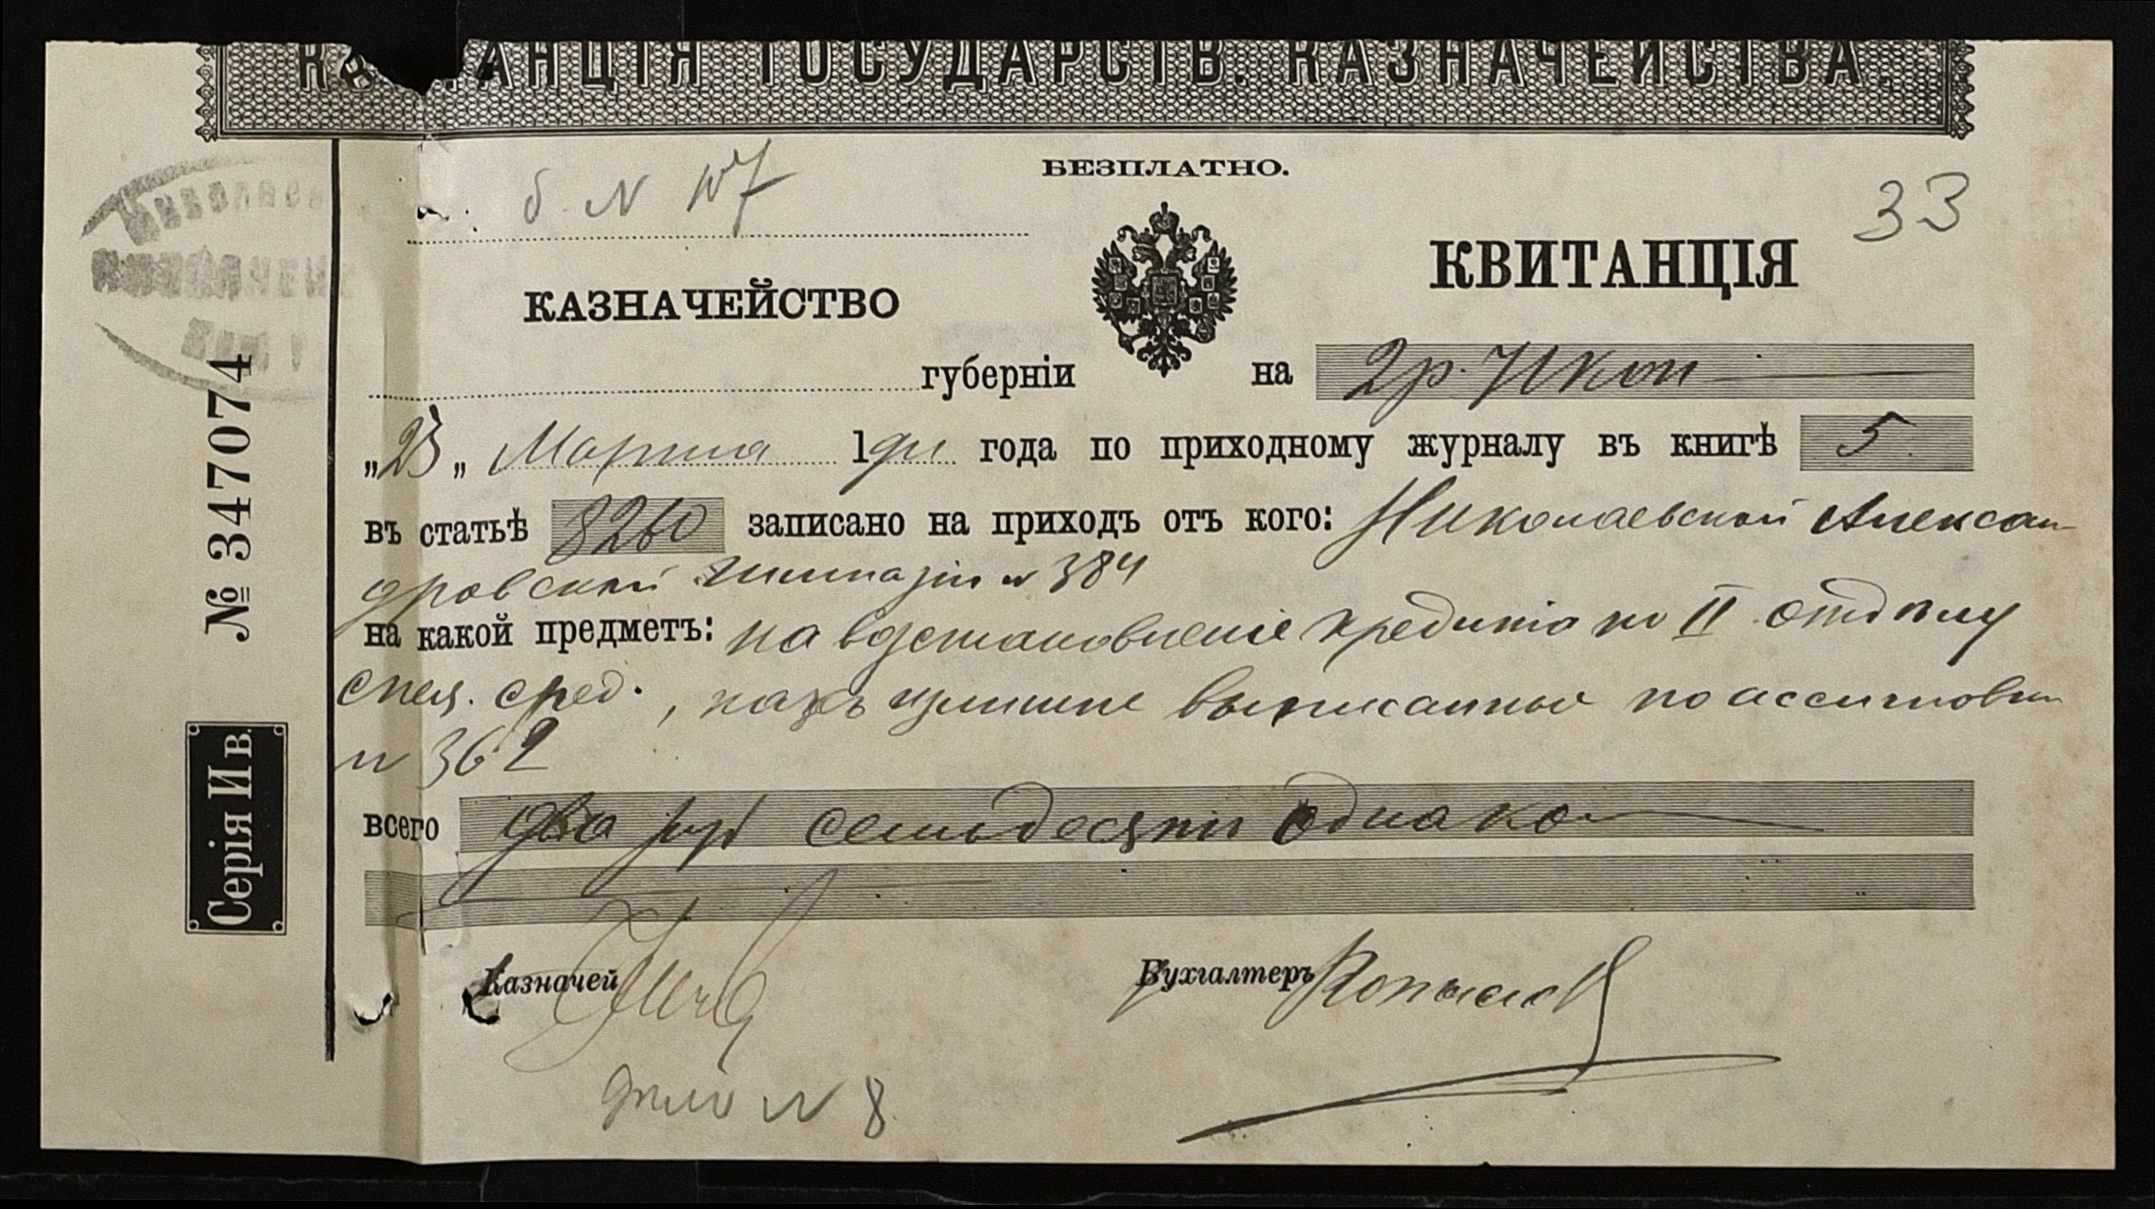 КВИТАНЦІЯ ГОСУДАРСТВ. КАЗНАЧЕЙСТВА.
БЕЗПЛАТНО.
б. N 107
33
КАЗНАЧЕЙСТВО
КВИТАНЦІЯ
губерніи
на 2 р. 71 коп
„23„ Марта 1911 года по приходному журналу въ книгѣ 5
въ статьѣ 8260 записано на приходъ отъ кого: Николаевской Алексан-
дровской гимназіи N 384
на какой предметъ: на возстановленіе кредита по II отдѣлу
спец. сред., какъ излишне выписанные по ассигновкѣ
N 362
всего два руб семьдесятъ одна коп
Казначей
Бухгалтеръ
дѣло N 8
№ 347074
Серія И в.